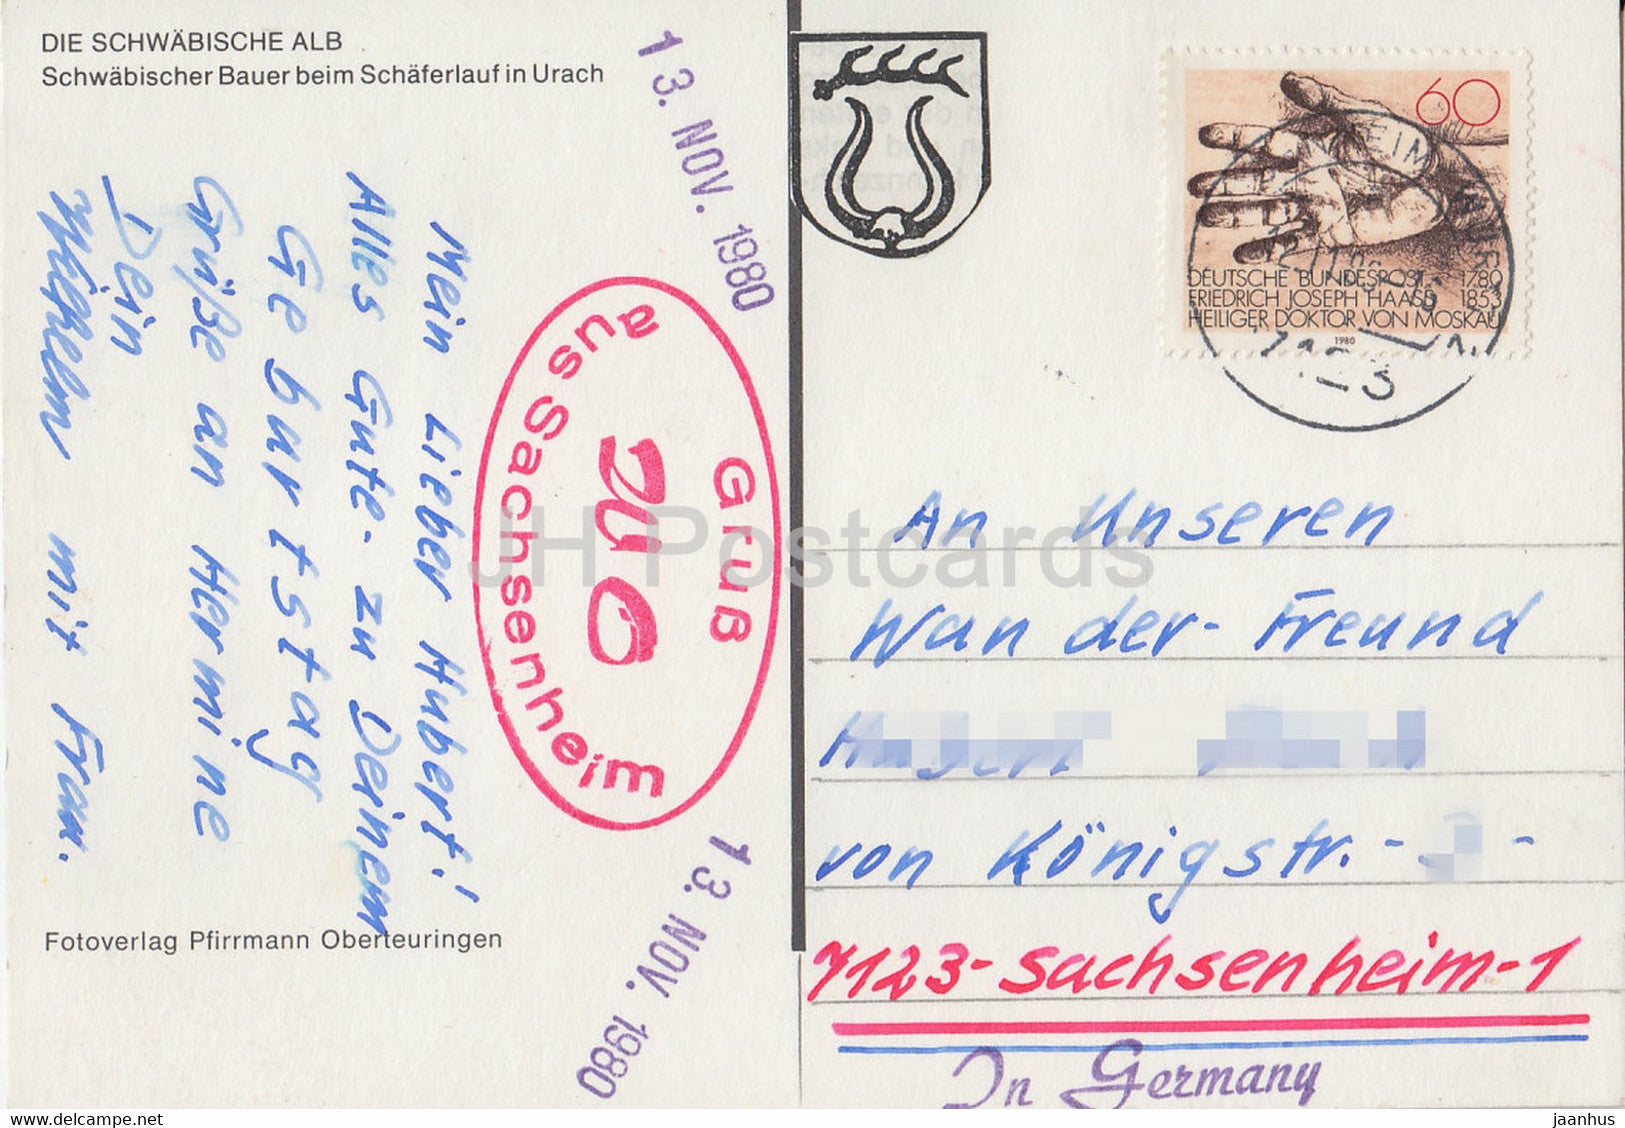 DIE SCHWÄBISCHE ALB
Schwäbischer Bauer beim Schäferlauf in Urach
Mein Lieber Hubert!
Alles Gute- zu Deinem
Geburtstag
Grüße an Hermine
Dein
Wilhelm mit Frau.
Fotoverlag Pfirrmann Oberteuringen
13. NOV. 1980
Gruß
aus Sachsenheim
13. NOV. 1980
60
DEUTSCHE BUNDESPOST 1780
FRIEDRICH JOSEPH HAASS 1853
HEILIGER DOKTOR VON MOSKAU
1980
An Unseren
Wander-Freund
von Königstr.-
7123-Sachsenheim-1
In Germany
JH Postcards
jaanhus